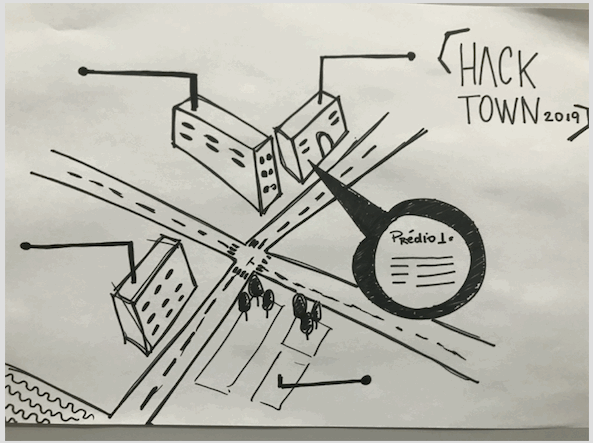 HACK
TOWN 2019
Prédio 1.